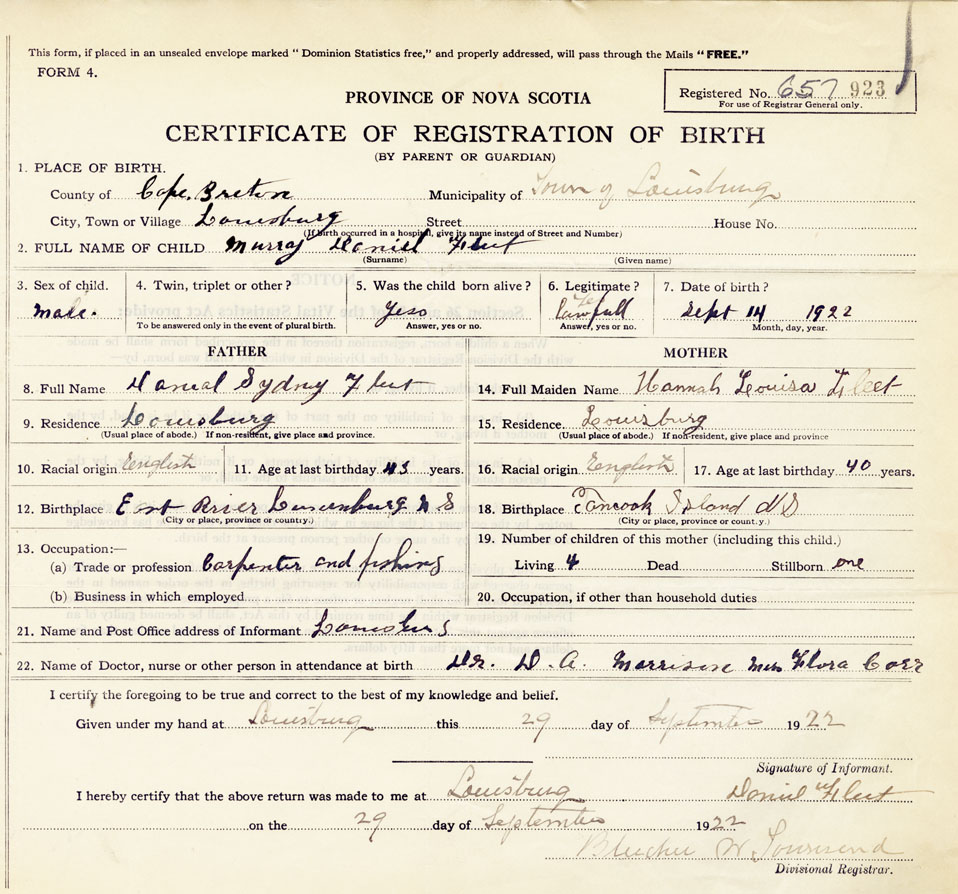 This form, if placed in an unsealed envelope marked "Dominion Statistics free," and properly addressed, will pass through the Mails "FREE."
FORM 4.
Registered No. 657 923
For use of Registrar General only.
PROVINCE OF NOVA SCOTIA
CERTIFICATE OF REGISTRATION OF BIRTH
(BY PARENT OR GUARDIAN)
1. PLACE OF BIRTH.
County of Cape Breton Municipality of Town of Louisburg
City, Town or Village Louisburg Street House No.
(If birth occurred in a hospital, give its name instead of Street and Number)
2. FULL NAME OF CHILD Murray Daniel Fleet
(Surname) (Given name)
3. Sex of child. 4. Twin, triplet or other? 5. Was the child born alive? 6. Legitimate? 7. Date of birth?
male. Yess Lawfull Sept 14 1922
To be answered only in the event of plural birth. Answer, yes or no. Answer, yes or no. Month, day, year.
FATHER MOTHER
8. Full Name Danial Sydny Fleet 14. Full Maiden Name Hannah Louisa Fleet
9. Residence Louisburg 15. Residence. Louisburg
(Usual place of abode.) If non-resident, give place and province. (Usual place of abode.) If non-resident, give place and province
10. Racial origin English 11. Age at last birthday 43 years. 16. Racial origin English 17. Age at last birthday 40 years.
12. Birthplace East River Lunenburg N S 18. Birthplace Tancook Island NS
(City or place, province or country.) (City or place, province or country.)
13. Occupation:— 19. Number of children of this mother (including this child.)
(a) Trade or profession Carpenter and fishing Living 4 Dead Stillborn one
(b) Business in which employed 20. Occupation, if other than household duties
21. Name and Post Office address of Informant Louisburg
22. Name of Doctor, nurse or other person in attendance at birth Dr. D. A. Morrison Mrs Flora Corr
I certify the foregoing to be true and correct to the best of my knowledge and belief.
Given under my hand at Louisburg this 29 day of September 1922
Signature of Informant.
I hereby certify that the above return was made to me at Louisburg Daniel Fleet
on the 29 day of September 1922
W. Townsend
Divisional Registrar.